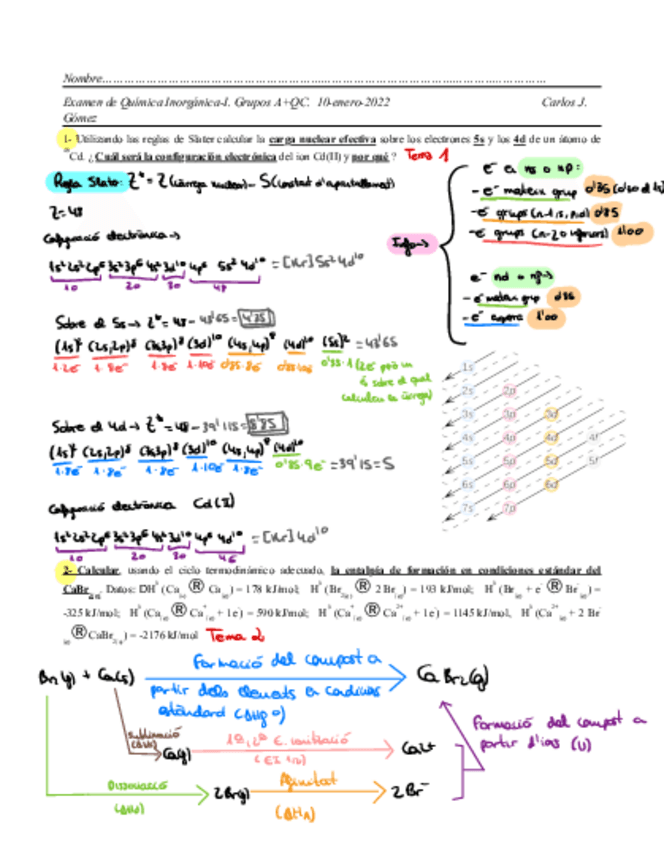 Nombre……………………………………………………………………………………
Examen de Química Inorgánica-I. Grupos A+QC. 10-enero-2022 Carlos J.
Gómez
1- Utilizando las reglas de Slater calcular la carga nuclear efectiva sobre los electrones 5s y los 4d de un átomo de
Cd. ¿Cuál será la configuración electrónica del ion Cd(II) y por qué? Tema 1
Regla Slater: Z* = Z (càrrega nuclear) - S (constant d'apantallament)
Z=48
Configuració electrònica →
1s² 2s² 2p⁶ 3s² 3p⁶ 4s² 3d¹⁰ 4p⁶ 5s² 4d¹⁰ = [Kr] 5s² 4d¹⁰
10 20 30 48
e⁻ a ns o np:
- e⁻ mateix grup 0'35
- e⁻ grups (n-1) s, p, d) 0'85
- e⁻ grups (n-2 o inferiors) 1'00
e⁻ nd o nf →
- e⁻ mateix grup 0'35
- e⁻ 1'00
Sobre el 5s → Z* = 48 - 43'65 = 4'35
(1s)² (2s,2p)⁸ (3s,3p)⁸ (3d)¹⁰ (4s,4p)⁸ (4d)¹⁰ (5s)² = 43'65
1·2e⁻ 1·8e⁻ 1·8e⁻ 1·10e⁻ 0'85·8e⁻ 0'35·1 (2e⁻ però un
és sobre el qual
calculem la càrrega)
1s
2s 2p
3s 3p 3d
4s 4p 4d 4f
5s 5p 5d 5f
6s 6p 6d
7s 7p
Sobre el 4d → Z* = 48 - 39'15 = 8'85
(1s)² (2s,2p)⁸ (3s,3p)⁸ (3d)¹⁰ (4s,4p)⁸ (4d)¹⁰
1·8e⁻ 1·8e⁻ 1·10e⁻ 1·8e⁻ 0'35·9e⁻ = 39'15 = S
Configuració electrònica Cd(II)
1s² 2s² 2p⁶ 3s² 3p⁶ 4s² 3d¹⁰ 4p⁶ 4d¹⁰ = [Kr] 4d¹⁰
10 20 30 46
2- Calcular, usando el ciclo termodinámico adecuado, la entalpía de formación en condiciones estándar del
CaBr₂. Datos: DH (Ca ® Ca) = 178 kJ/mol; H (Br₂ ® 2 Br) = 193 kJ/mol; H (Br + e⁻ ® Br⁻) =
-325 kJ/mol; H (Ca ® Ca⁺ + 1e⁻) = 590 kJ/mol; H (Ca⁺ ® Ca²⁺ + 1e⁻) = 1145 kJ/mol, H (Ca²⁺ + 2 Br⁻
® CaBr₂) = -2176 kJ/mol Tema 2
Formació del compost a
Br₂(g) + Ca(s) CaBr₂(g)
partir dels elements en condicions
estàndard (ΔHf⁰)
Formació del compost a
partir d'ions (U)
Sublimació
1ª, 2ª E. ionització
Ca(g) Ca²⁺
Dissociació 2Br(g) Afinitat 2Br⁻
(ΔHd) (ΔHA)